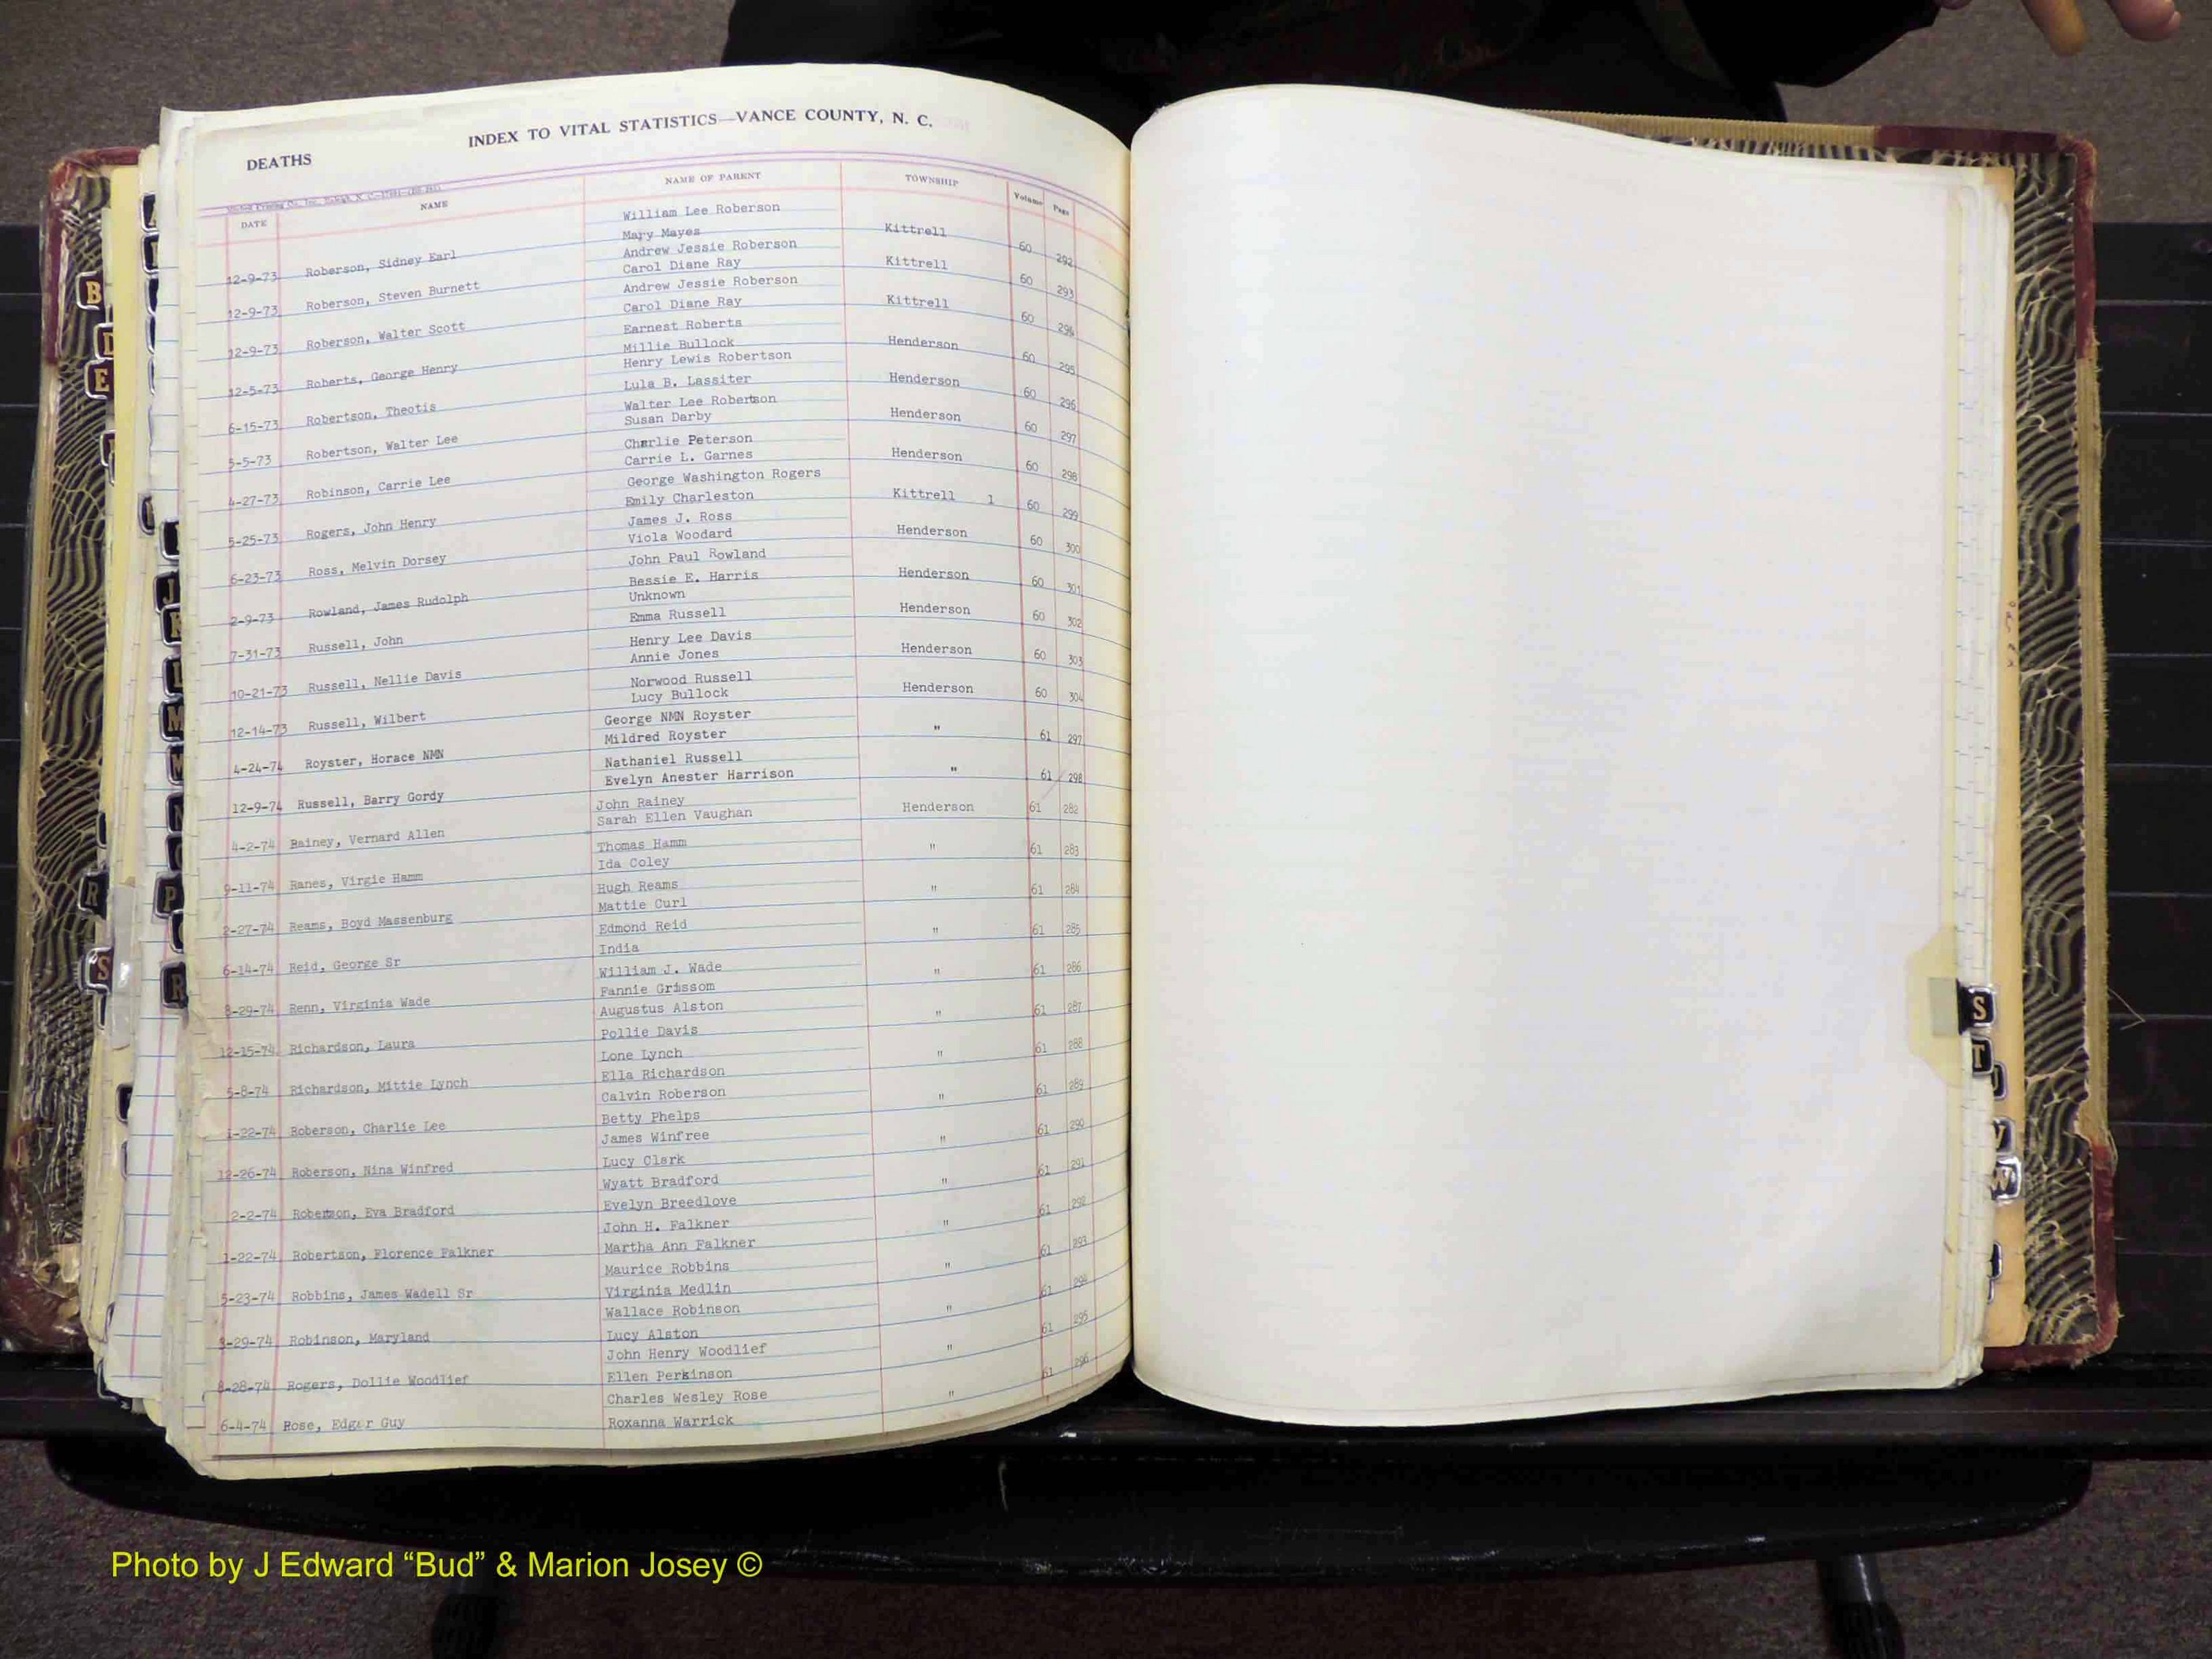 INDEX TO VITAL STATISTICS—VANCE COUNTY, N. C.
DEATHS
DATE NAME NAME OF PARENT TOWNSHIP Volume Page
12-9-73 Roberson, Sidney Earl William Lee Roberson Kittrell 60 292
Mary Mayes
12-9-73 Roberson, Steven Burnett Andrew Jessie Roberson Kittrell 60 293
Carol Diane Ray
12-9-73 Roberson, Walter Scott Andrew Jessie Roberson Kittrell 60 294
Carol Diane Ray
12-5-73 Roberts, George Henry Earnest Roberts Henderson 60 295
Millie Bullock
6-15-73 Robertson, Theotis Henry Lewis Robertson Henderson 60 296
Lula B. Lassiter
5-5-73 Robertson, Walter Lee Walter Lee Robertson Henderson 60 297
Susan Darby
4-27-73 Robinson, Carrie Lee Charlie Peterson Henderson 60 298
Carrie L. Garnes
5-25-73 Rogers, John Henry George Washington Rogers Kittrell 1 60 299
Emily Charleston
6-23-73 Ross, Melvin Dorsey James J. Ross Henderson 60 300
Viola Woodard
2-9-73 Rowland, James Rudolph John Paul Rowland Henderson 60 301
Bessie E. Harris
7-31-73 Russell, John Unknown Henderson 60 302
Emma Russell
10-21-73 Russell, Nellie Davis Henry Lee Davis Henderson 60 303
Annie Jones
12-14-73 Russell, Wilbert Norwood Russell Henderson 60 304
Lucy Bullock
4-24-74 Royster, Horace NMN George NMN Royster " 61 297
Mildred Royster
12-9-74 Russell, Barry Gordy Nathaniel Russell " 61 298
Evelyn Anester Harrison
4-2-74 Rainey, Vernard Allen John Rainey Henderson 61 282
Sarah Ellen Vaughan
9-11-74 Ranes, Virgie Hamm Thomas Hamm " 61 283
Ida Coley
2-27-74 Reams, Boyd Massenburg Hugh Reams " 61 284
Mattie Curl
6-14-74 Reid, George Sr Edmond Reid " 61 285
India
8-29-74 Renn, Virginia Wade William J. Wade " 61 286
Fannie Grissom
12-15-74 Richardson, Laura Augustus Alston " 61 287
Pollie Davis
5-8-74 Richardson, Mittie Lynch Lone Lynch " 61 288
Ella Richardson
1-22-74 Roberson, Charlie Lee Calvin Roberson " 61 289
Betty Phelps
12-26-74 Roberson, Nina Winfred James Winfree " 61 290
Lucy Clark
2-2-74 Robertson, Eva Bradford Wyatt Bradford " 61 291
Evelyn Breedlove
1-22-74 Robertson, Florence Falkner John H. Falkner " 61 292
Martha Ann Falkner
5-23-74 Robbins, James Wadell Sr Maurice Robbins " 61 293
Virginia Medlin
Robinson, Maryland Wallace Robinson " 61 294
Lucy Alston
8-28-74 Rogers, Dollie Woodlief John Henry Woodlief " 61 295
Ellen Perkinson
6-4-74 Rose, Edgar Guy Charles Wesley Rose " 61 296
Roxanna Warrick
B
E
R
S
J
K
L
M
N
P
R
S
T
W
Photo by J Edward “Bud” & Marion Josey ©